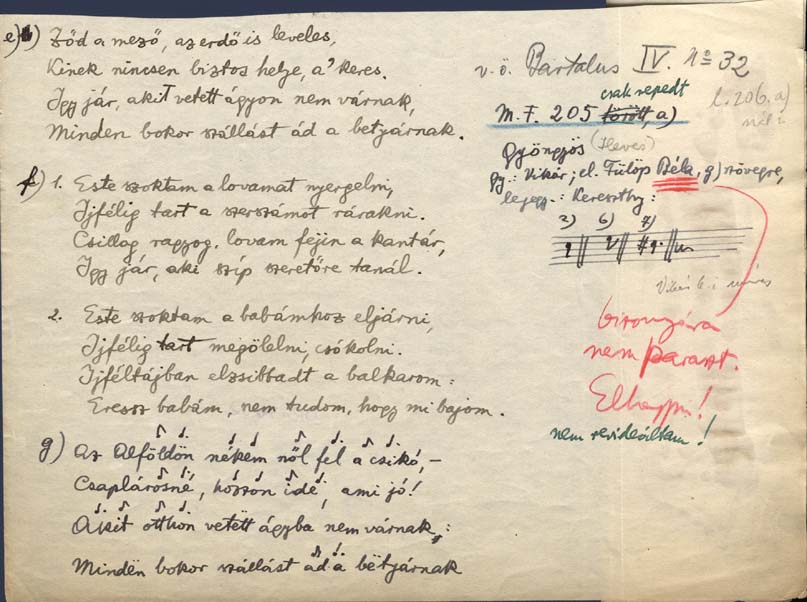 e) Ződ a mező, az erdő is leveles,
Kinek nincsen biztos helye, a' keres.
Így jár, akit vetett ágyon nem várnak,
Minden bokor szállást ád a betyárnak.
f) 1. Este szoktam a lovamat nyergelni,
Ijfélig tart a szerszámot rárakni.
Csillag ragyog, lovam fejin a kantár,
Így jár, aki szíp szeretőre tanál.
2. Este szoktam a babámhoz eljárni,
Ijfélig tart megölelni, csókolni.
Ijféltájban elzsibbadt a balkarom:
Eressz babám, nem tudom, hogy mi bajom.
g) Az Alföldön nékem nől fel a csikó, –
Csaplárosné, hozzon idé, ami jó!
Akit otthon vetett ágyba nem várnak,:
Mindën bokor szállást ad a bëtyárnak
v.ö. Bartalus IV. No 32
csak repedt
M.F. 205 törött, a)
l. 206. a)
nél is
Gyöngyös (Heves)
gy.: Vikár; el. Fülöp Béla, g) szövegre,
lejegy.: Kereszthy:
3) 6) 7)
Vikár
bizonyára
nem paraszt.
Elhagyni!
nem revideáltam!